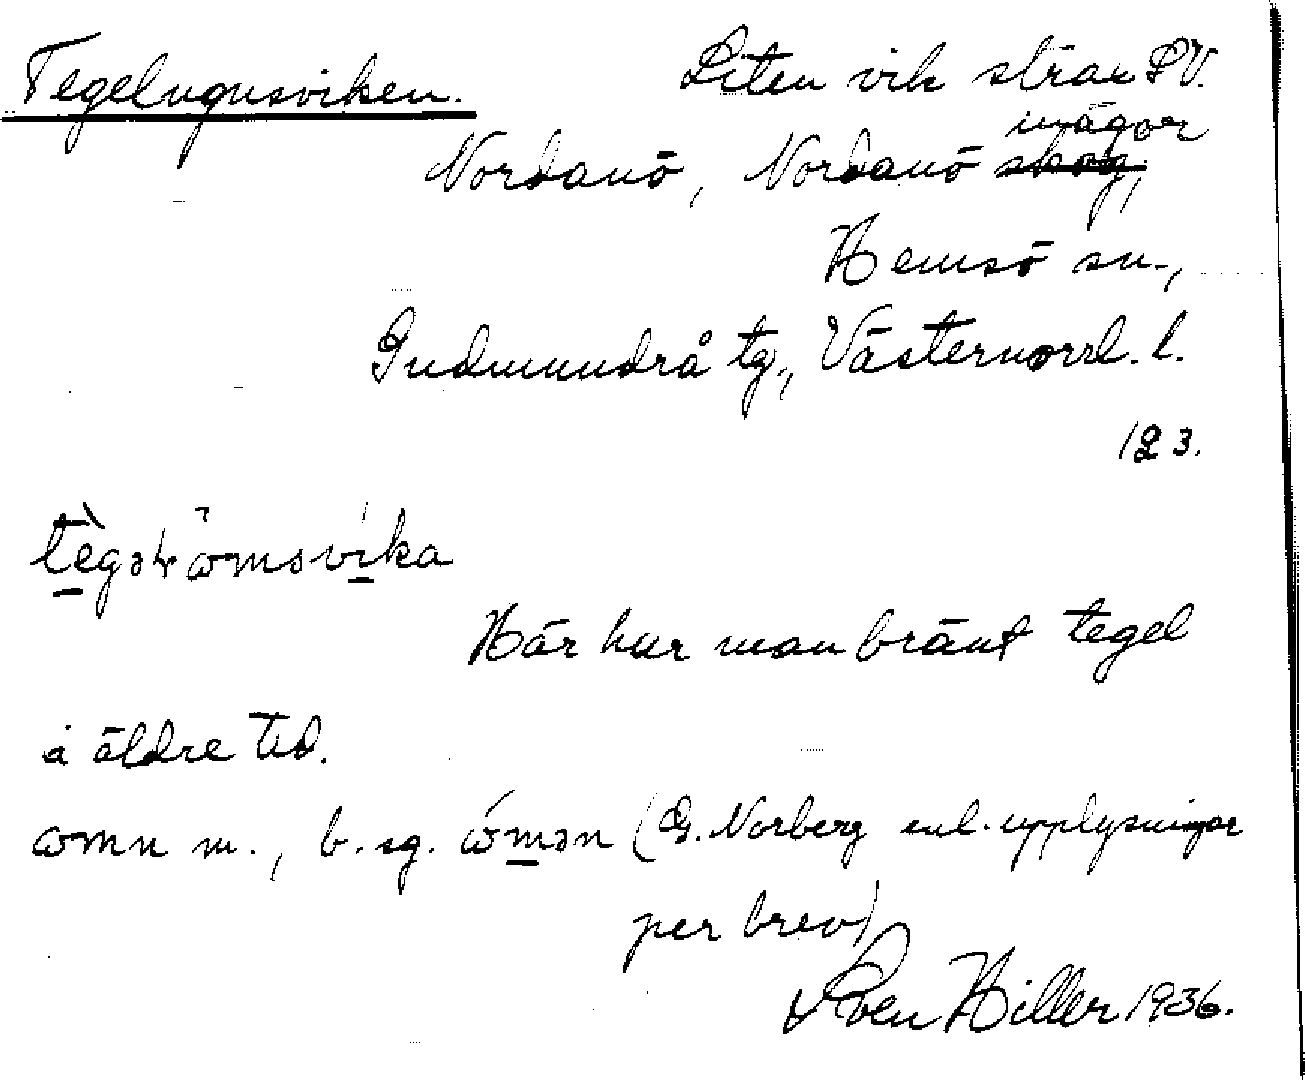 Tegelugnsviken. Liten vik strax SV.
Nordanö, Nordanö ~~skog,~~ mägor
Hemsö sn.,
Gudmundrå tg., Västernorrl. l.
123.
tègəlòmsvíka
Här har man bränt tegel
i äldre tid.
omn m., b. sg. ómən (G. Norberg enl. upplysningar
per brev)
Sven Hiller 1936.